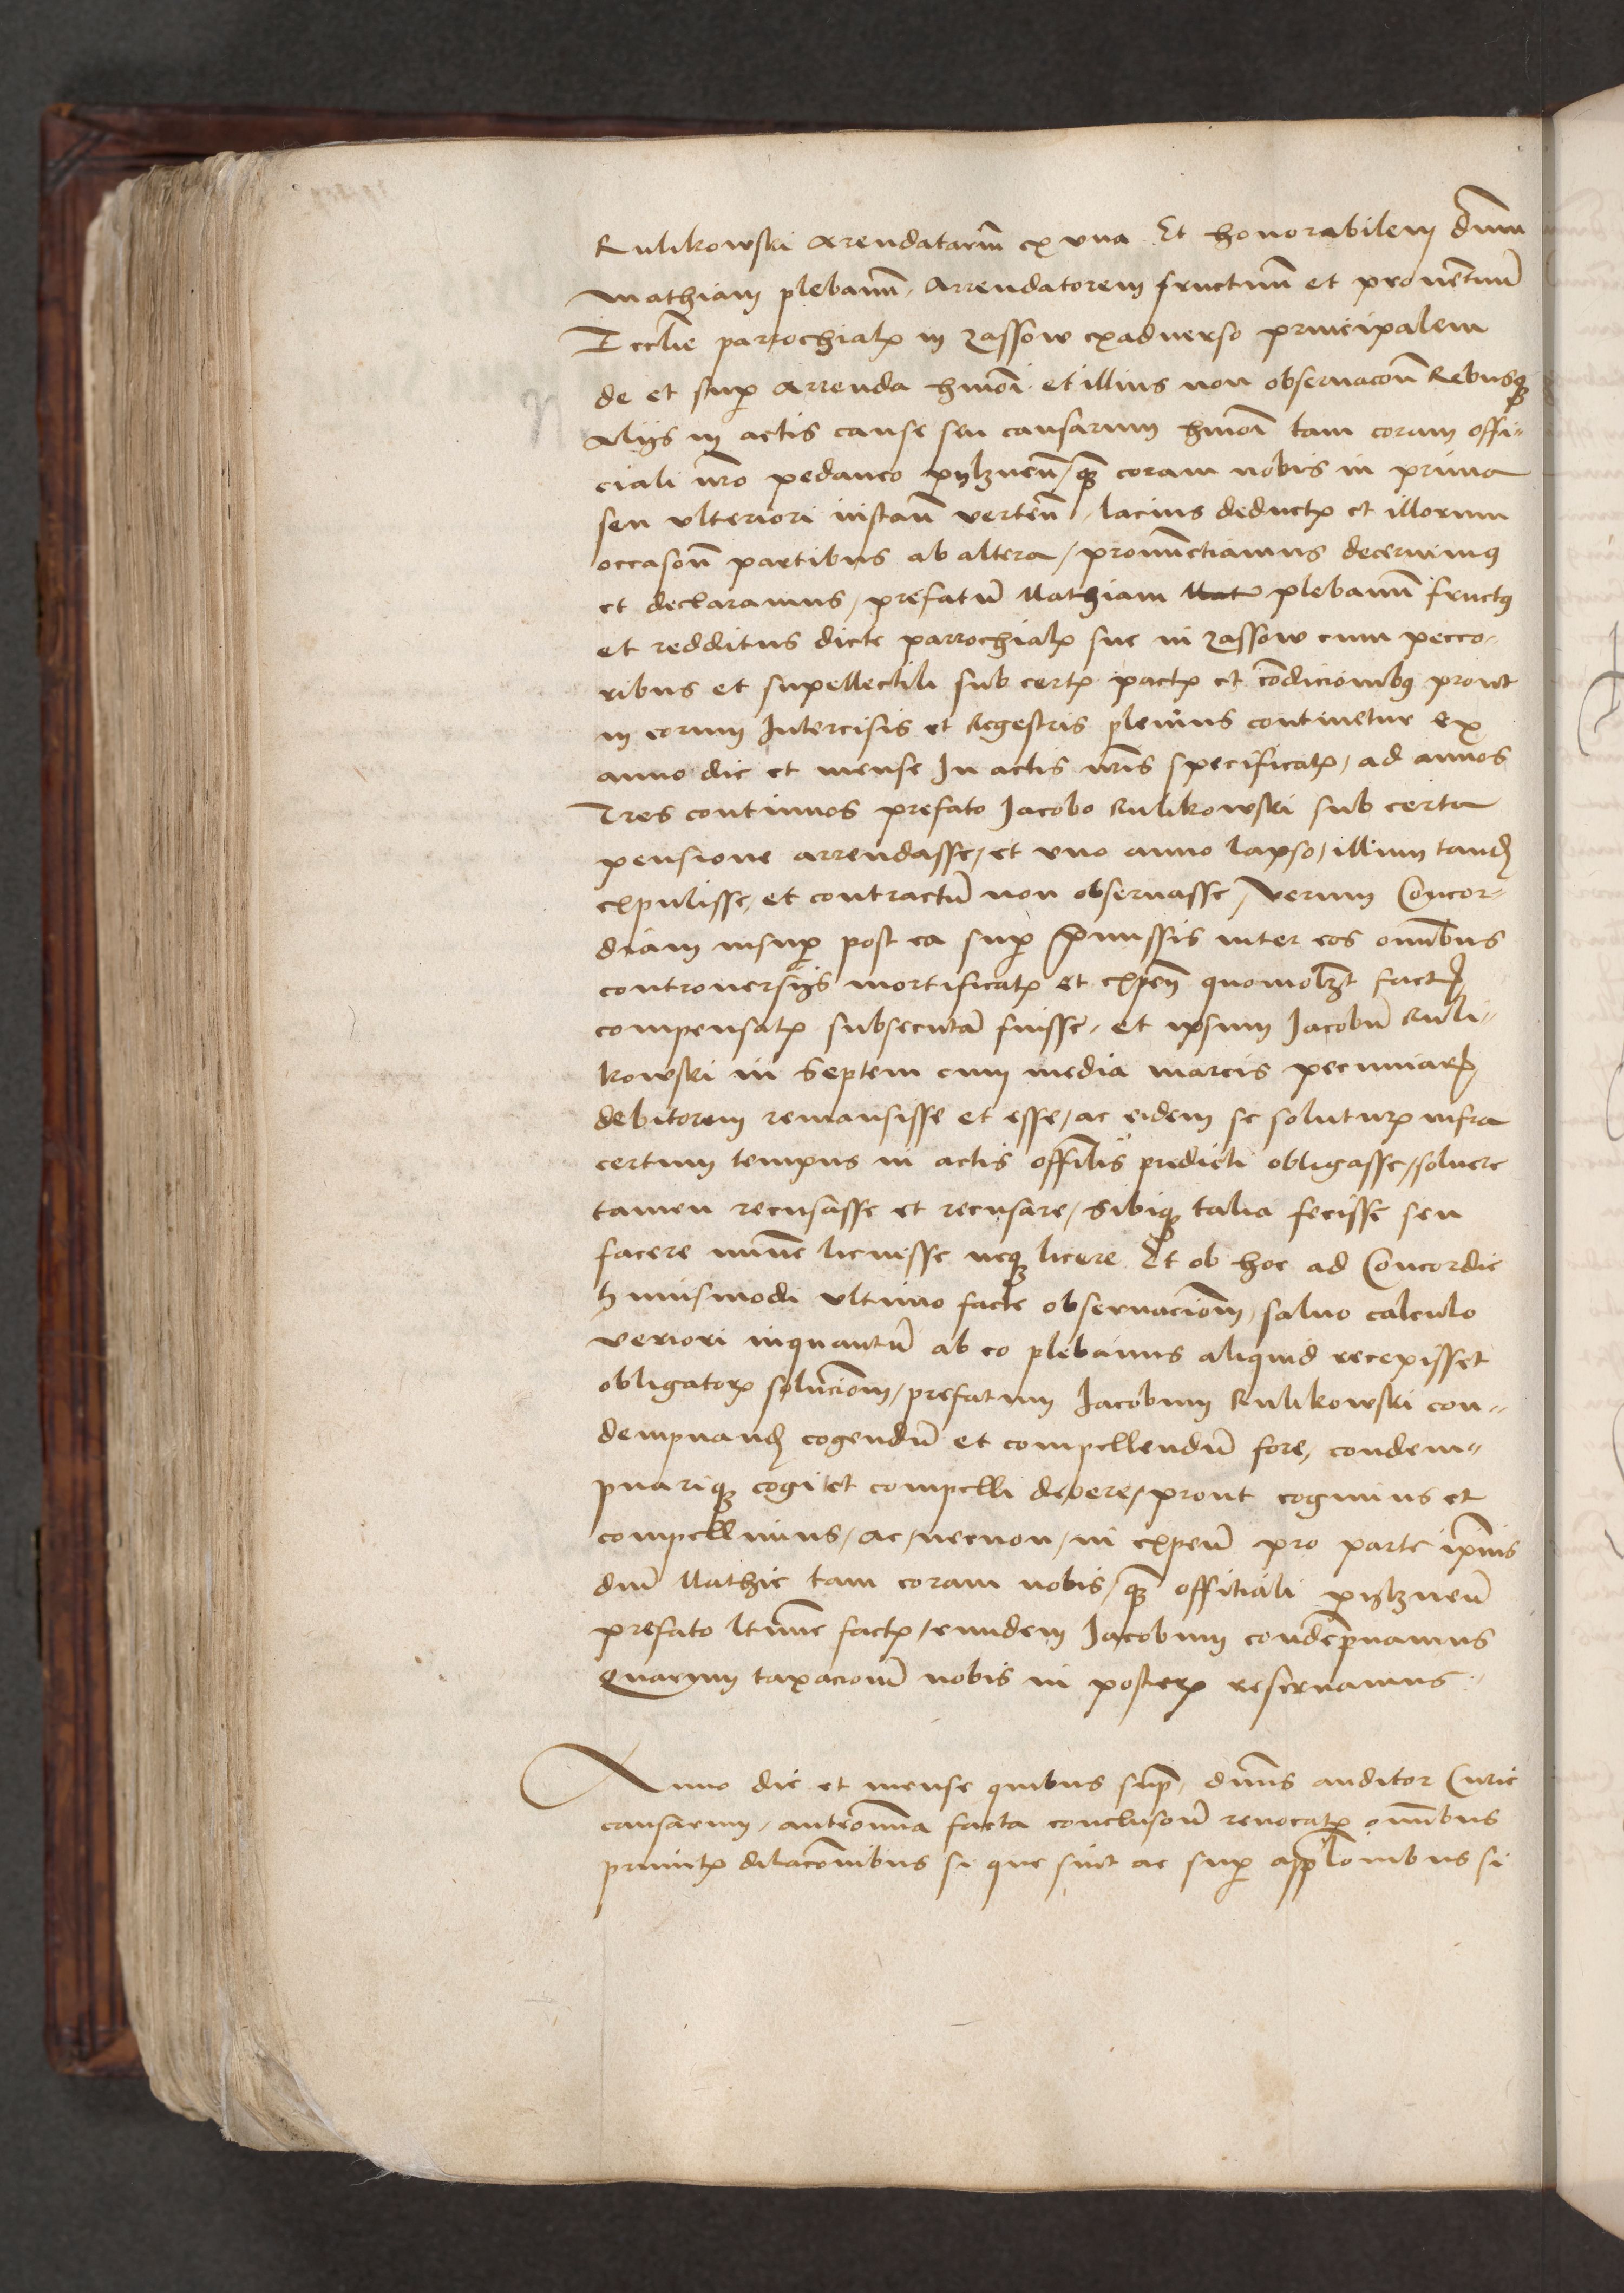 Rulikowski Arendatariu͞ ex vna Et honorabilem dn͞um
Mathiam plebanu͞, Arrendatorem fructuu͞ et prouentuu͞
Eccl͞ie parrochialꝭ in Zassow exaduerso principalem
de et sup̱ Arrenda hm͞oi et illius non obseruac͞on Rebusqꝫ
Alijs in actis cause seu causarum hm͞oi tam coram offi„
ciali nr͞o pedaneo pylznen͞, qꝫ coram nobis in prima
seu vlteriori instan͞ verten͞, lacius deductꝭ et illorum
occasion͞ partibus ab altera, pronunctiamus decernimꝰ
et declaramus, prefatu͞ Mathiam plebanu͞ fructꝰ
et redditus dicte parrochialꝭ sue in Zassow cum pecco„
ribus et supellectili sub certꝭ pactꝭ et co͞dicionibꝰ prout
in eorum Intercisis et Regestris pleniꝰs continetur ex
anno die et mense In actis nr͞is specificatꝭ, ad annos
Tres continuos prefato Jacobo Rulikowski sub certa
pensione arrendasse, et vno anno lapso, illum tandꝭ
expulisse, et contractu͞ non obseruasse, verum Concor„
diam insup̱ post ea sup̱ p͞missis inter eos omn͞ibus
controuersijs mortificatꝭ et expen͞ quomolꝫt factꝭ
compensatꝭ subsecuta͞ fuisse, et ipsum Jacobu͞ Ruli„
kowski in Septem cum media marcis pecuniarꝭ
debitorem remansisse et esse, ac eidem se soluturꝭ infra
certum tempus in actis offi͞lis predicti obligasse, soluere
tamen recusasse et recusare, sibiqꝫ talia fecisse seu
facere minime licuisse neqꝫ licere Et ob hoc ad Concordie
huiusmodi vltimo facte obseruacione͞, saluo calculo
veriori inquantu͞ ab eo plebanus aliquid recepisset
obligatorꝭ soluc͞ion͞, prefatum Jacobum Rulikowski con„
dempnandꝭ cogendu͞ et compellendu͞ fore, condem„
pnariqꝫ cogi et compelli debere, prout cogimus et
compellimus, ac, necnon, in expen͞ pro parte ip͞ius
dn͞i Mathie tam coram nobis, qꝫ offitiali pylznen͞
prefato l͞time factꝭ, eundem Jacobum conde͞pnamus
Quarum taxacione͞ nobis in posterꝭ reseruamus.

Anno die et mense quibus sup̱, dn͞us auditor Curie
causarum, facta conclusion͞ reuocatꝭ omn͞ibus
dilac͞onibus si que sint ac sup̱ appl͞onibus si